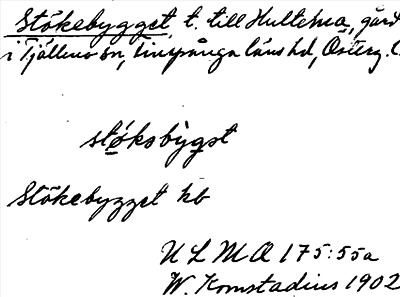 Stökebygget, t. till Hultema, gård
i Tjällmo sn, Finspånga läns hd, Österg. l.
stø̀ksbỳgst
Stökebygget kb
ULMA 175:55a
W. Komstadius 1902